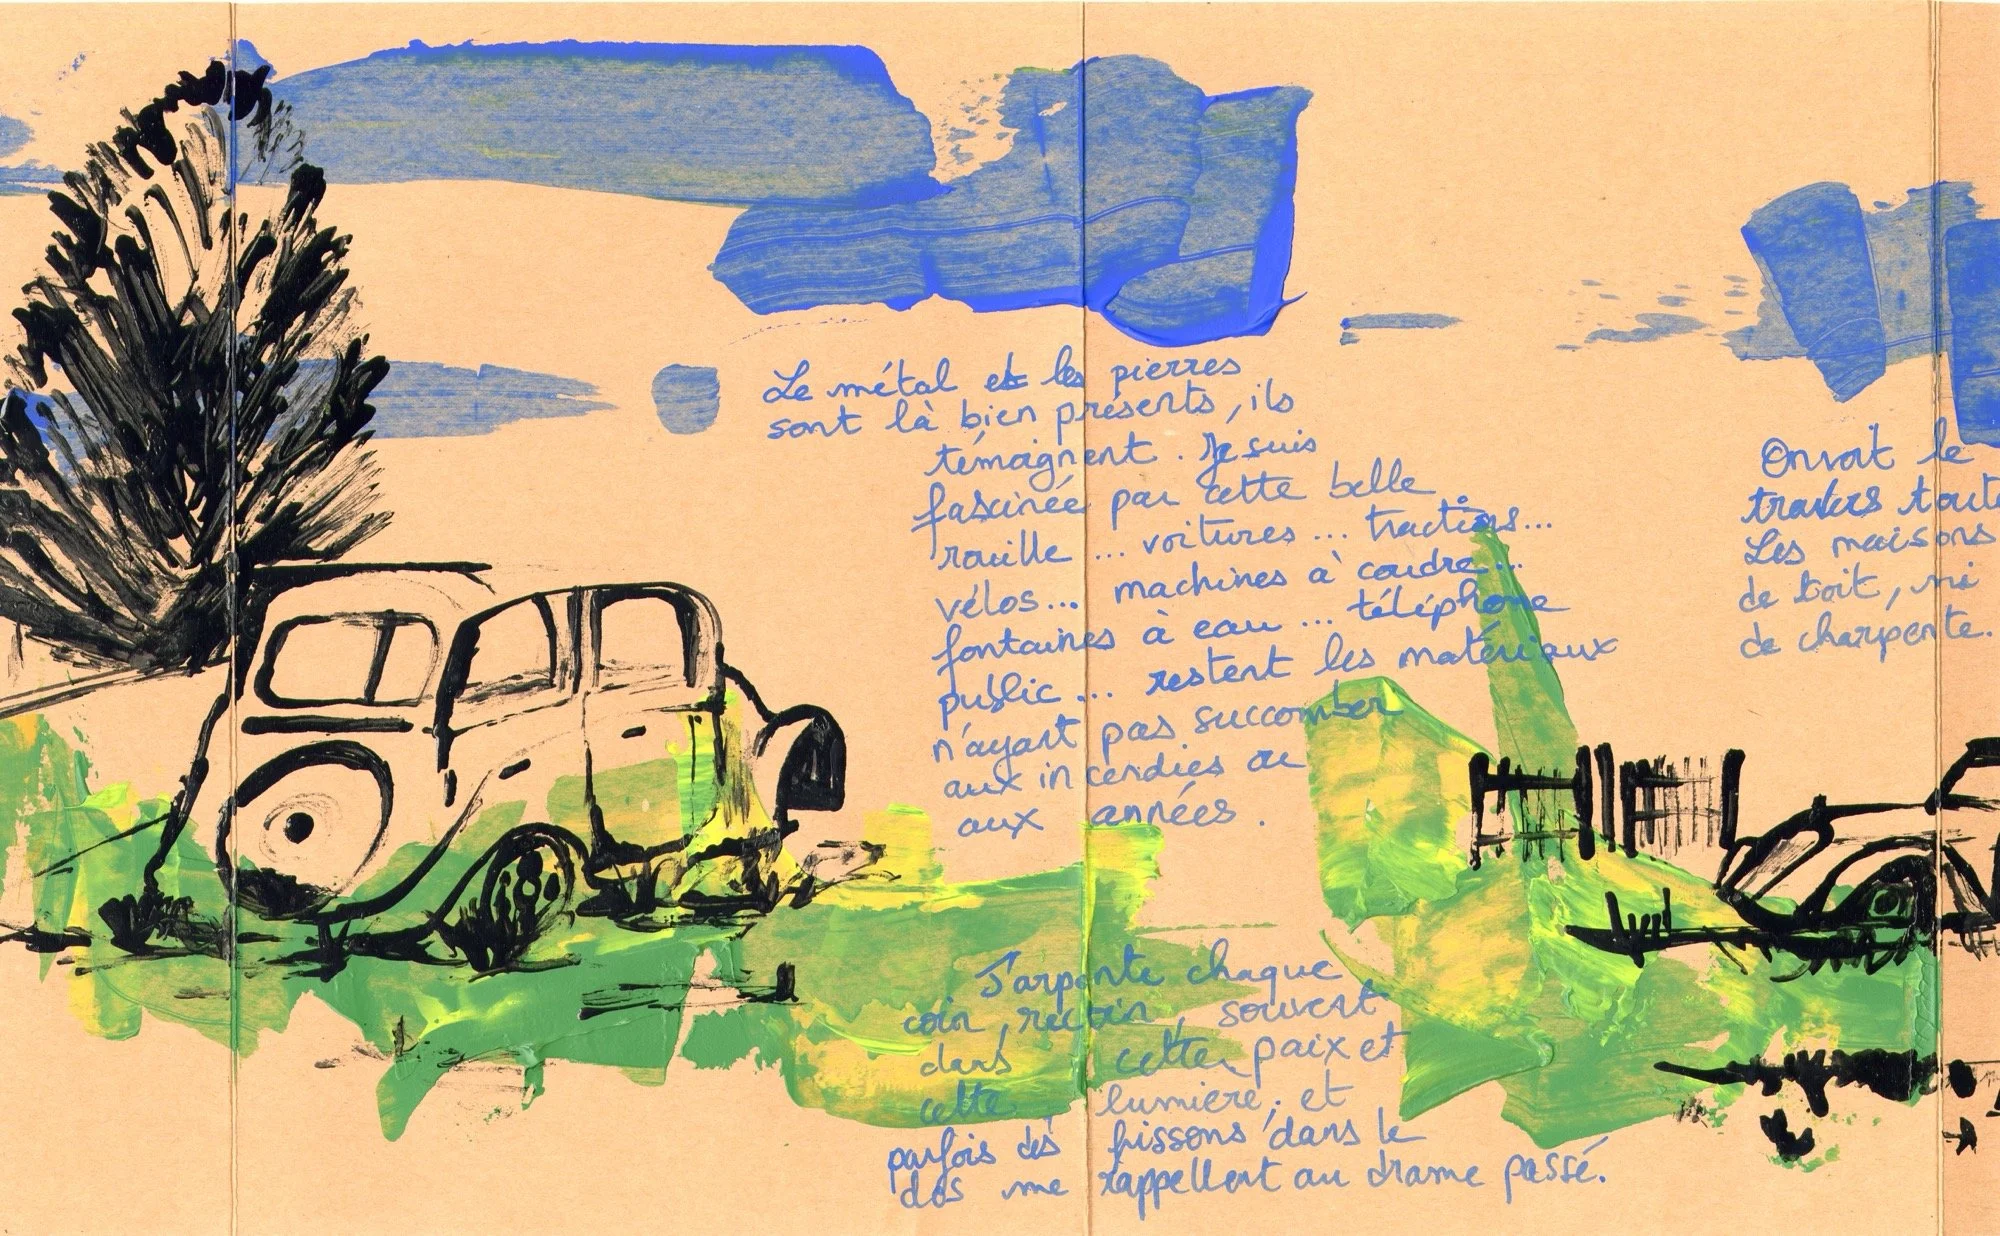 Le métal et les pierres
sont là bien présents, ils
témoignent. Je suis
fascinée par cette belle
rouille ... voitures ... tractions...
vélos... machines à coudre...
fontaines à eau ... téléphone
public ... restent les matériaux
n'ayant pas succomber
aux incendies ou
aux années.
J'arpente chaque
coin, recoin, souvent
dans cette paix et
cette lumière, et
parfois des frissons dans le
dos me rappellent au drame passé.
On voit le
travers toute
Les maisons
de toit, ni
de charpente.